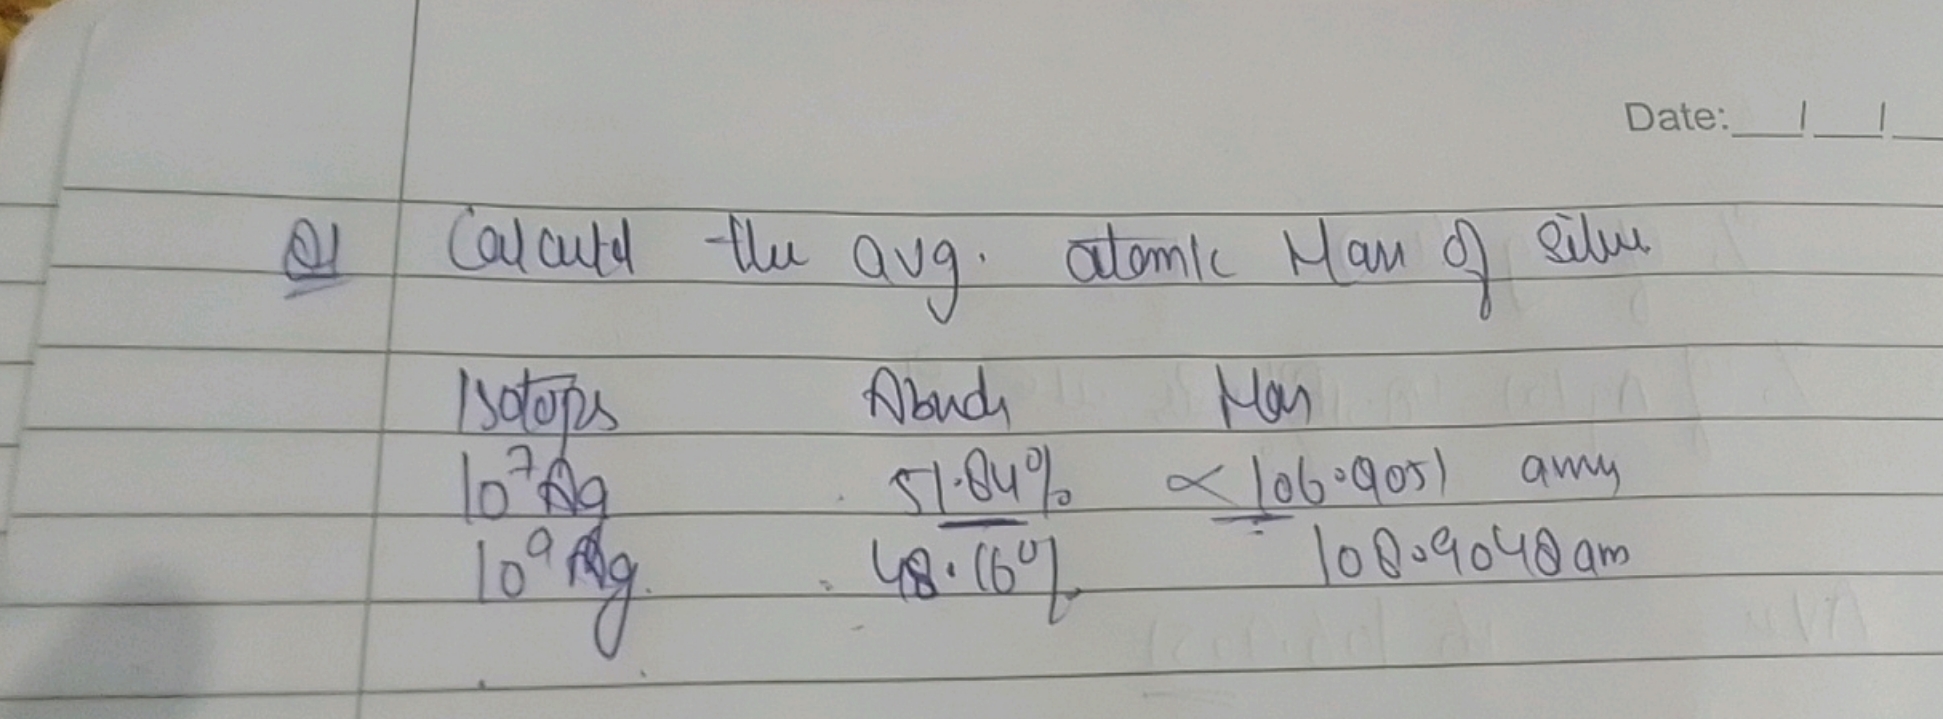 Date: __/__/__
Q1 Calcultd the avg. atomic Mass of silver
Isotops Abud Mas
10⁷Ag 51.84% ∝ 106.9051 amu
10⁹Ag. 48.16% 108.9048 am